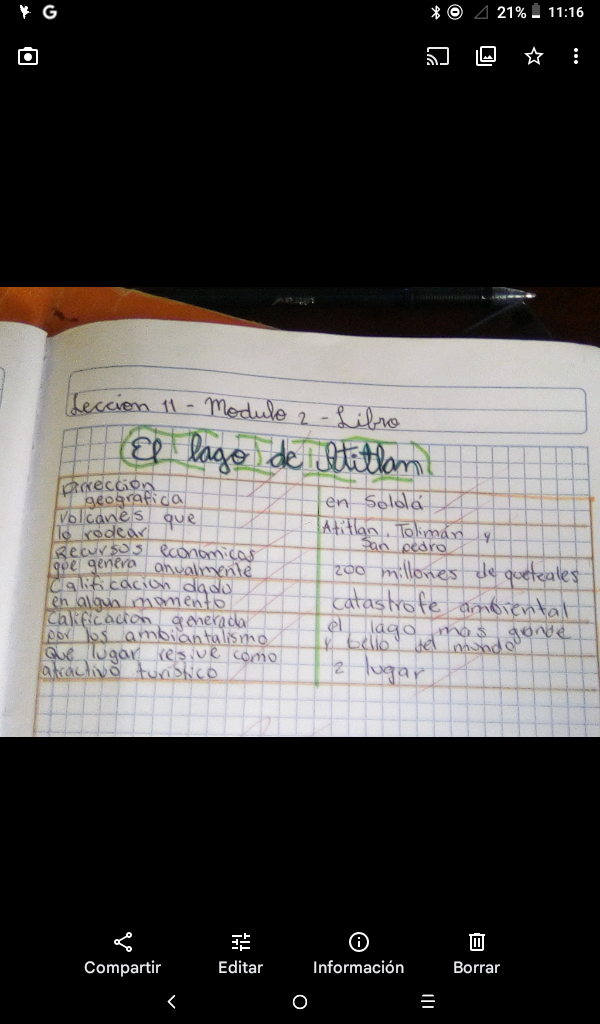 21% 11:16
Leccion 11 - Modulo 2 - Libro
El lago de Atitlan
Dirección
geográfica
en Sololá
volcanes que
lo rodear
Atitlan, Tolimán y
San pedro
Recursos economicos
que genera anualmente
200 millones de quetzales
Calificacion dado
en algun momento
catastrofe ambiental
Calificacion generada
por los ambiantalismo
el lago mas grande
y bello del mundo
que lugar resive como
atractivo turistico
2 lugar
Compartir
Editar
Información
Borrar